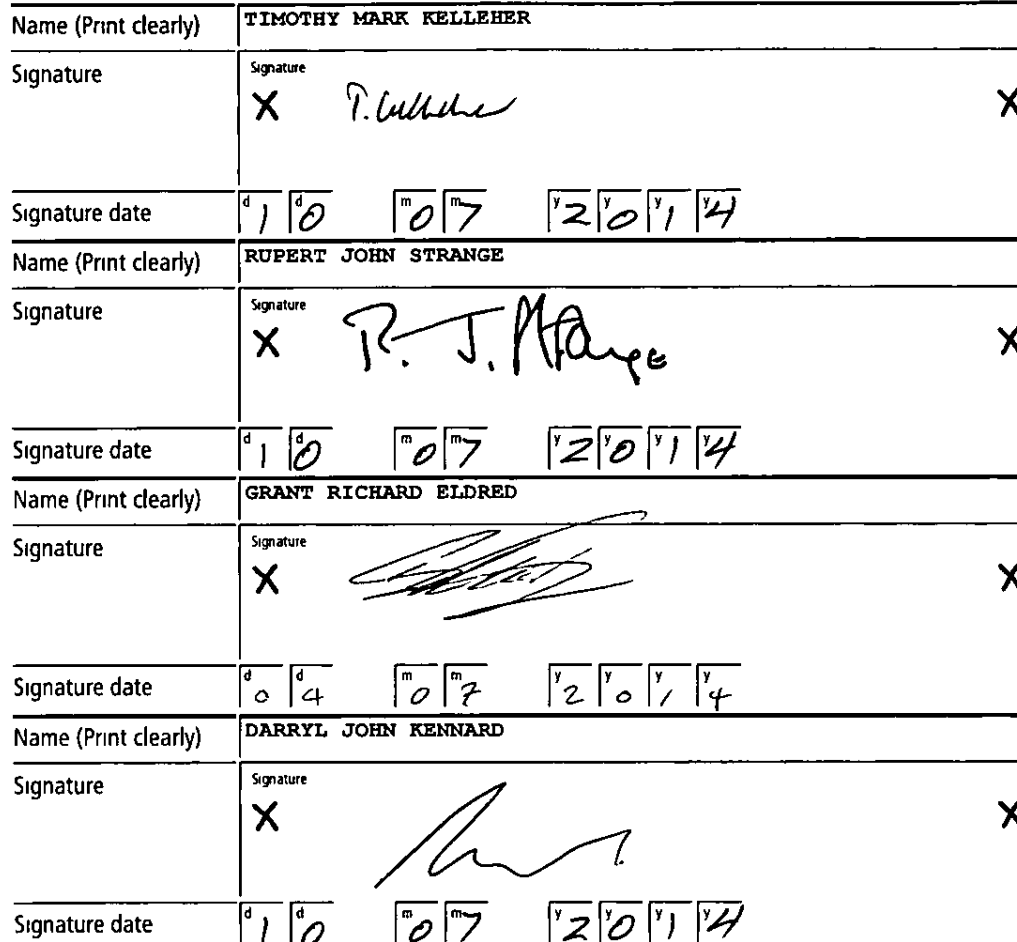 Name (Print clearly) TIMOTHY MARK KELLEHER
Signature Signature
X T. Kelleher X
Signature date d 1 d 0 m 0 m 7 y 2 y 0 y 1 y 4
Name (Print clearly) RUPERT JOHN STRANGE
Signature Signature
X R. J. Strange X
Signature date d 1 d 0 m 0 m 7 y 2 y 0 y 1 y 4
Name (Print clearly) GRANT RICHARD ELDRED
Signature Signature
X X
Signature date d 0 d 4 m 0 m 7 y 2 y 0 y 1 y 4
Name (Print clearly) DARRYL JOHN KENNARD
Signature Signature
X X
Signature date d 1 d 0 m 0 m 7 y 2 y 0 y 1 y 4